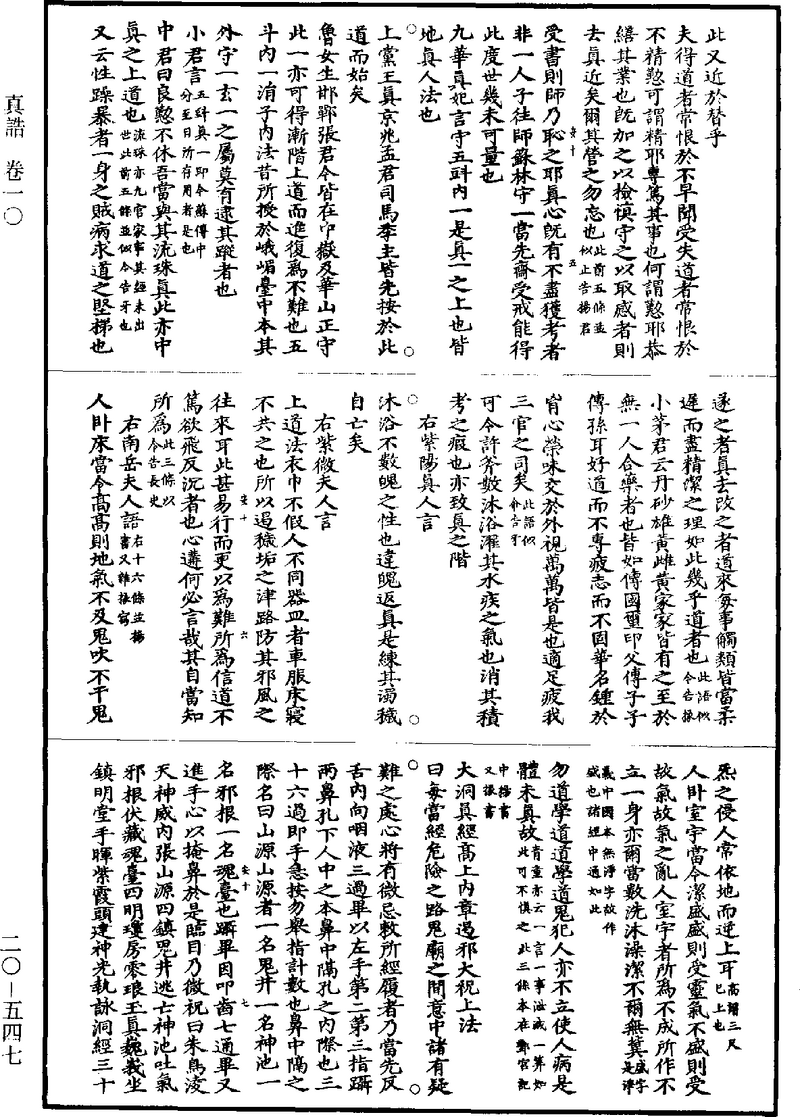 此又近於瞽乎
夫得道者常恨於不早聞受失道者常恨於
不精懃可謂精耶專篤其事也何謂懃耶恭
繕其業也旣加之以檢慎守之以取感者則
去真近矣爾其營之勿怠也此前五條並似止告楊君
安十 五
受書則師乃恥之耶真心旣有不盡獲考者
非一人子往師蘇林守一當先齋受戒能得
此度世幾未可量也
九華真妃言守五㪷內一是真一之上也皆
地真人法也
上黨王真京兆孟君司馬季主皆先按於此
道而始矣
魯女生邯鄲張君今皆在中嶽及華山正守
此一亦可得漸階上道而進復為不難也五
斗內一涓子內法昔所授於峨嵋臺中本其
外守一玄一之屬莫有逮其蹤者也
小君言五㪷真一即令蘇傳中分至日所存用者是也
中君曰良懃不休吾當與其流珠真此亦中
真之上道也流珠亦九宮家事其經未出世此前五條並似令告牙也
又云性躁暴者一身之賊病求道之堅梯也
遂之者真去改之者道來每事觸類皆當柔
遲而盡精潔之理如此幾乎道者也此語似令告掾
小茅君云丹砂雄黃雌黃家家皆有之至於
無一人合藥者也皆如傳國璽印父傳子子
傳孫耳好道而不專疲志而不固華名鍾於
胷心榮味交於外視萬萬皆是也適足疲我
三官之司矣此語似令告牙
可令許斧數沐浴濯其水疾之氣也消其積
考之瘕也亦致真之階
右紫陽真人言
沐浴不數魄之性也違魄返真是練其濁穢
自亡矣
右紫微夫人言
上道法衣巾不假人不同器皿者車服床寢
不共之也所以遏穢垢之津路防其邪風之
安十 六
往來耳此甚易行而更以為難所為信道不
篤欲飛反沉者也心遘何必言哉其自當知
所為此三條以令告長史
右南岳夫人語右十六條並楊書又雜掾寫
人卧床當令高高則地氣不及鬼吹不干鬼
炁之侵人常依地而逆上耳高謂三尺已上也
人卧室宇當令潔盛盛則受靈氣不盛則受
故氣故氣之亂人室宇者所為不成所作不
立一身亦爾當數洗沐澡潔不爾無冀盛字是淨
義中國本無淨字故作盛也諸經中通如此
勿道學道道學道鬼犯人亦不立使人病是
體未真故青童亦云一言一事泄減一算知此可不慎之此三條本在鄭宮記
中楊書又掾書
大洞真經高上內章遏邪大祝上法
曰每當經危險之路鬼廟之間意中諸有疑
難之處心將有微忌敕所經履者乃當先反
舌內向咽液三過畢以左手第二第三指躡
兩鼻孔下人中之本鼻中隔孔之內際也三
十六過即手急按勿舉指計數也鼻中隔之
際名曰山源山源者一名鬼井一名神池一
安十 七
名邪根一名魂臺也躡畢因叩齒七通畢又
進手心以掩鼻於是臨目乃微祝曰朱鳥凌
天神威內張山源四鎮鬼井逃亡神池吐氣
邪根伏藏魂臺四明瓊房零琅玉真巍峩坐
鎮明堂手暉紫霞頭建神光執詠洞經三十
真誥 卷一〇
二〇－五四七